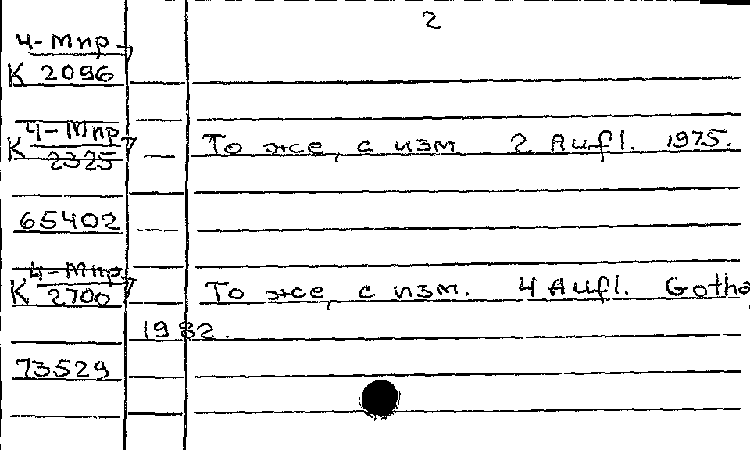 2
4-Мпр
К 2096
4-Мпр
К 2325 То же, с изм 2 Aufl. 1975.
65402
4-Мпр
К 2700 То же, с изм. 4 Aufl. Gotha,
1982.
73529